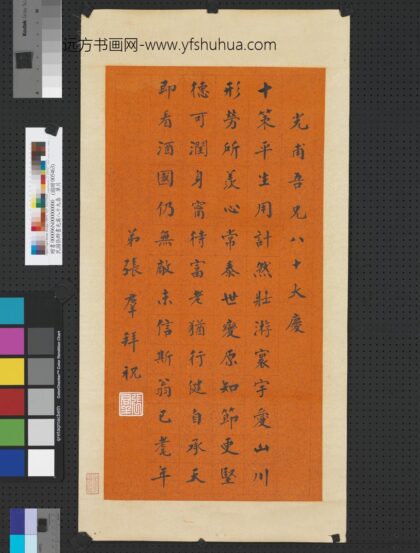 远方书画网-www.yfshuhua.com
光甫吾兄八十大慶
十策平生用計然壯游寰宇愛山川
形勞所羨心常泰世變原知節更堅
德可潤身甯待富老猶行健自承天
即看酒國仍無敵未信斯翁已耄年
弟張羣拜祝